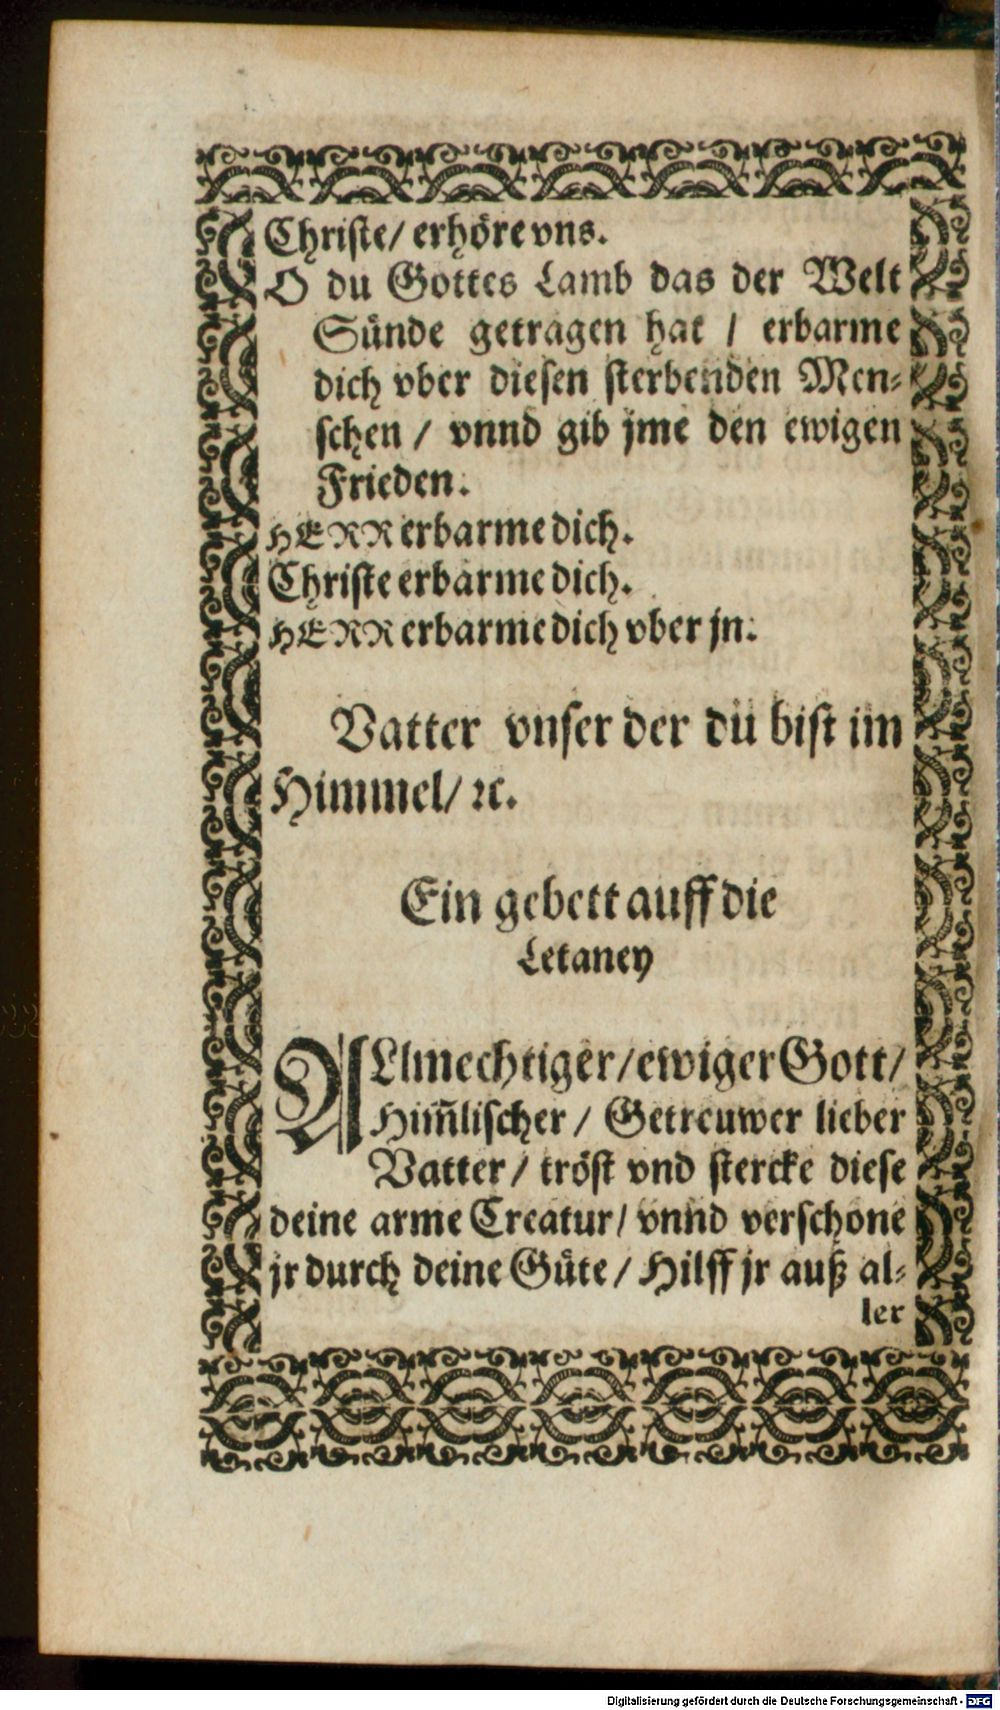 Christe/ erhöre vns.
O du Gottes Lamb das der Welt
Sünde getragen hat / erbarme
dich vber diesen sterbenden Men-
schen / vnnd gib jme den ewigen
Frieden.
HERR erbarme dich.
Christe erbarme dich.
HERR erbarme dich vber jn.
Vatter vnser der du bist im
Himmel/ ꝛc.
Ein gebett auff die
Letaney
ALlmechtiger/ ewiger Gott/
Him̃lischer / Getreuwer lieber
Vatter / tröst vnd stercke diese
deine arme Creatur/ vnnd verschone
jr durch deine Güte / Hilff jr auß al-
ler
Digitalisierung gefördert durch die Deutsche Forschungsgemeinschaft - DFG